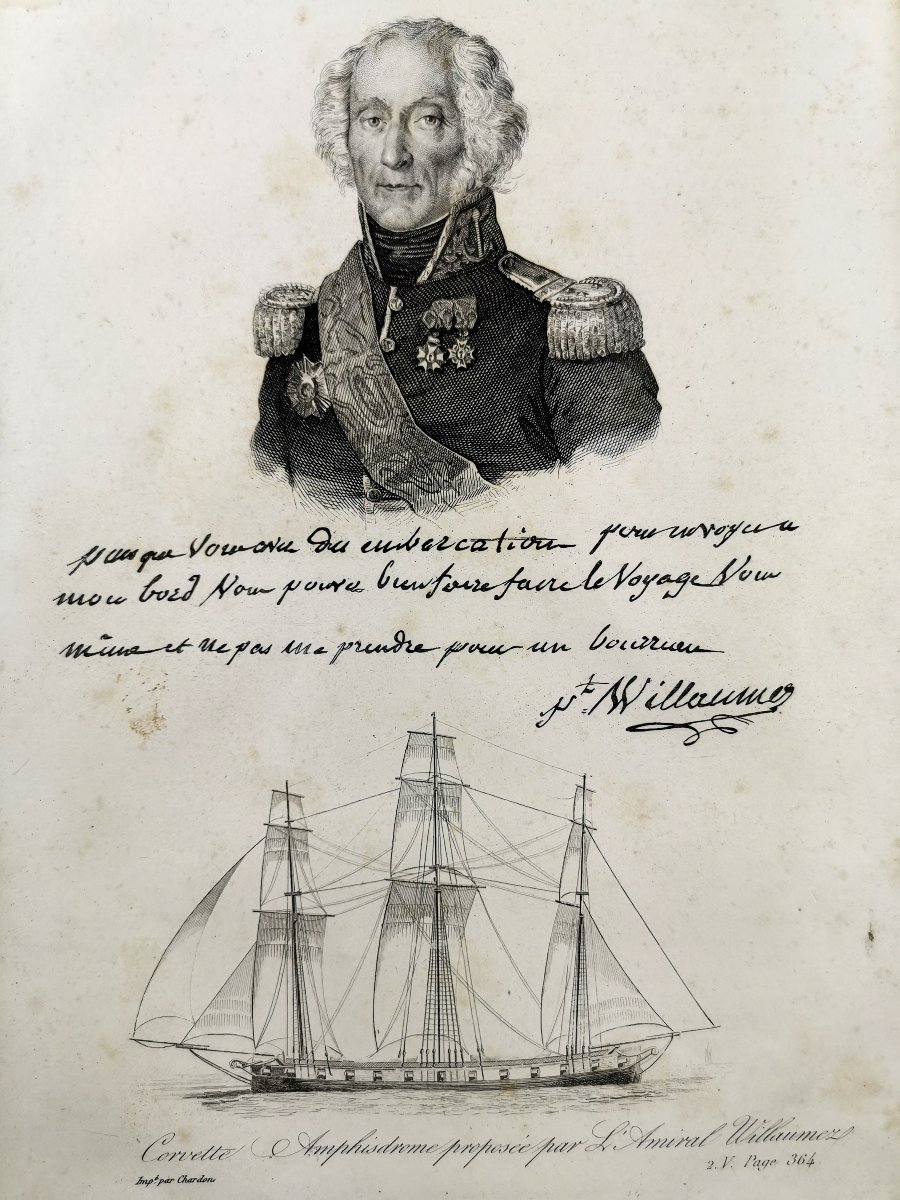 puisque Vous avez des embarcation pour envoyer a
mon bord Vous pouvez bien faire faire le Voyage Vous
même et ne pas me prendre pour un bourreau
Willaumez
Corvette Amphisdrome proposée par L'Amiral Willaumez
2.V. Page 364.
Impé par Chardon